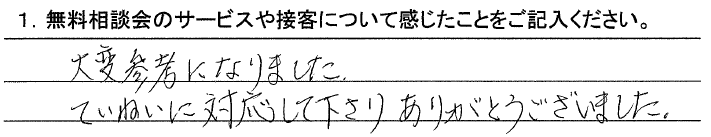 1. 無料相談会のサービスや接客について感じたことをご記入ください。
大変参考になりました.
ていねいに対応して下さりありがとうございました.